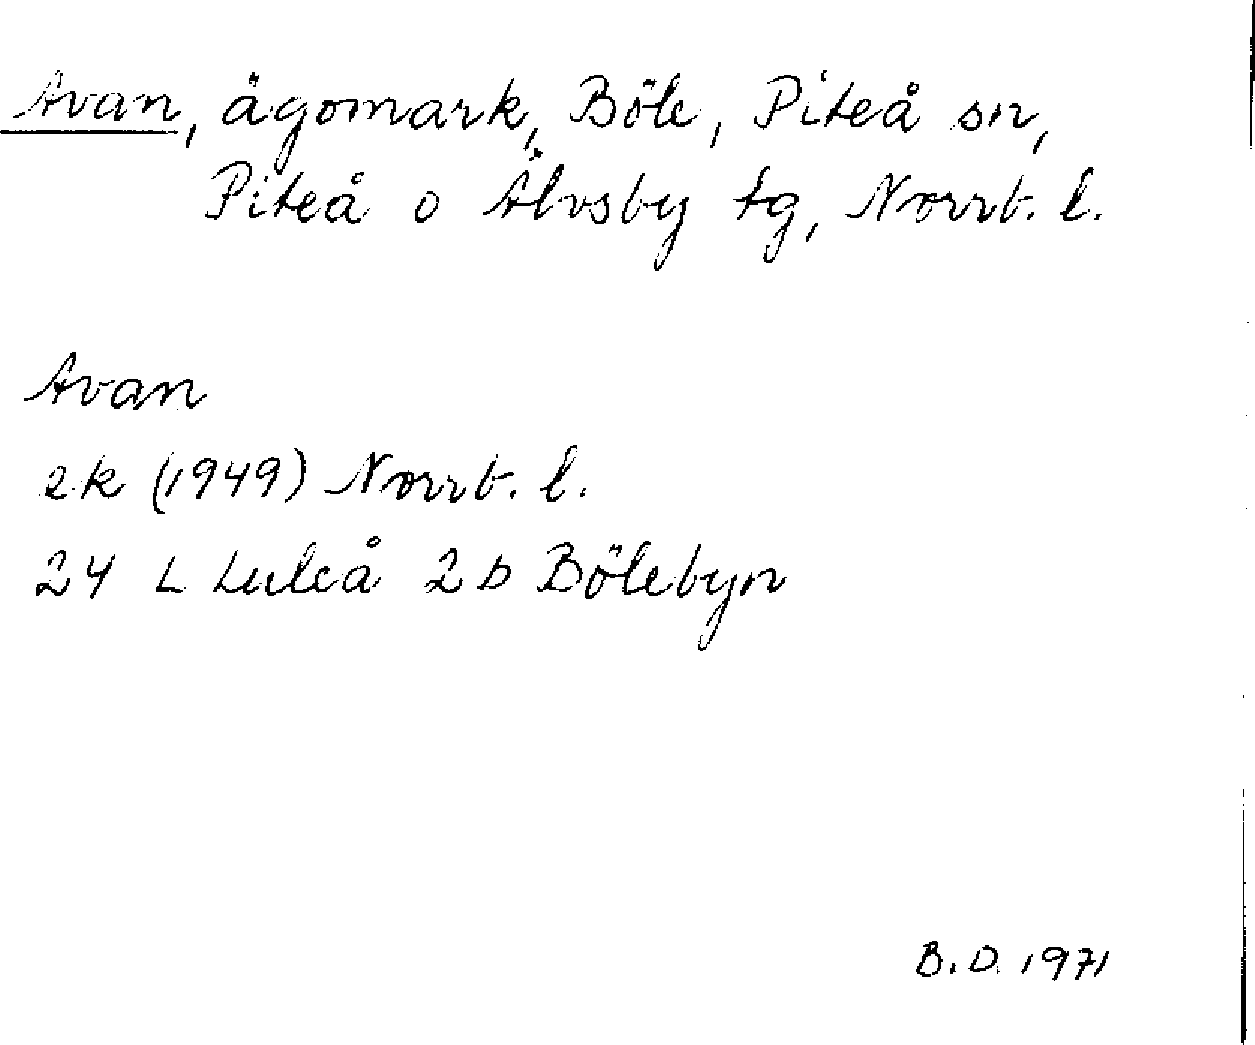 Avan, ägomark, Böle, Piteå sn,
Piteå o Älvsby tg, Norrb. l.
Avan
ek (1949) Norrb. l.
24 L Luleå 2 b Bölebyn
B.D. 1971